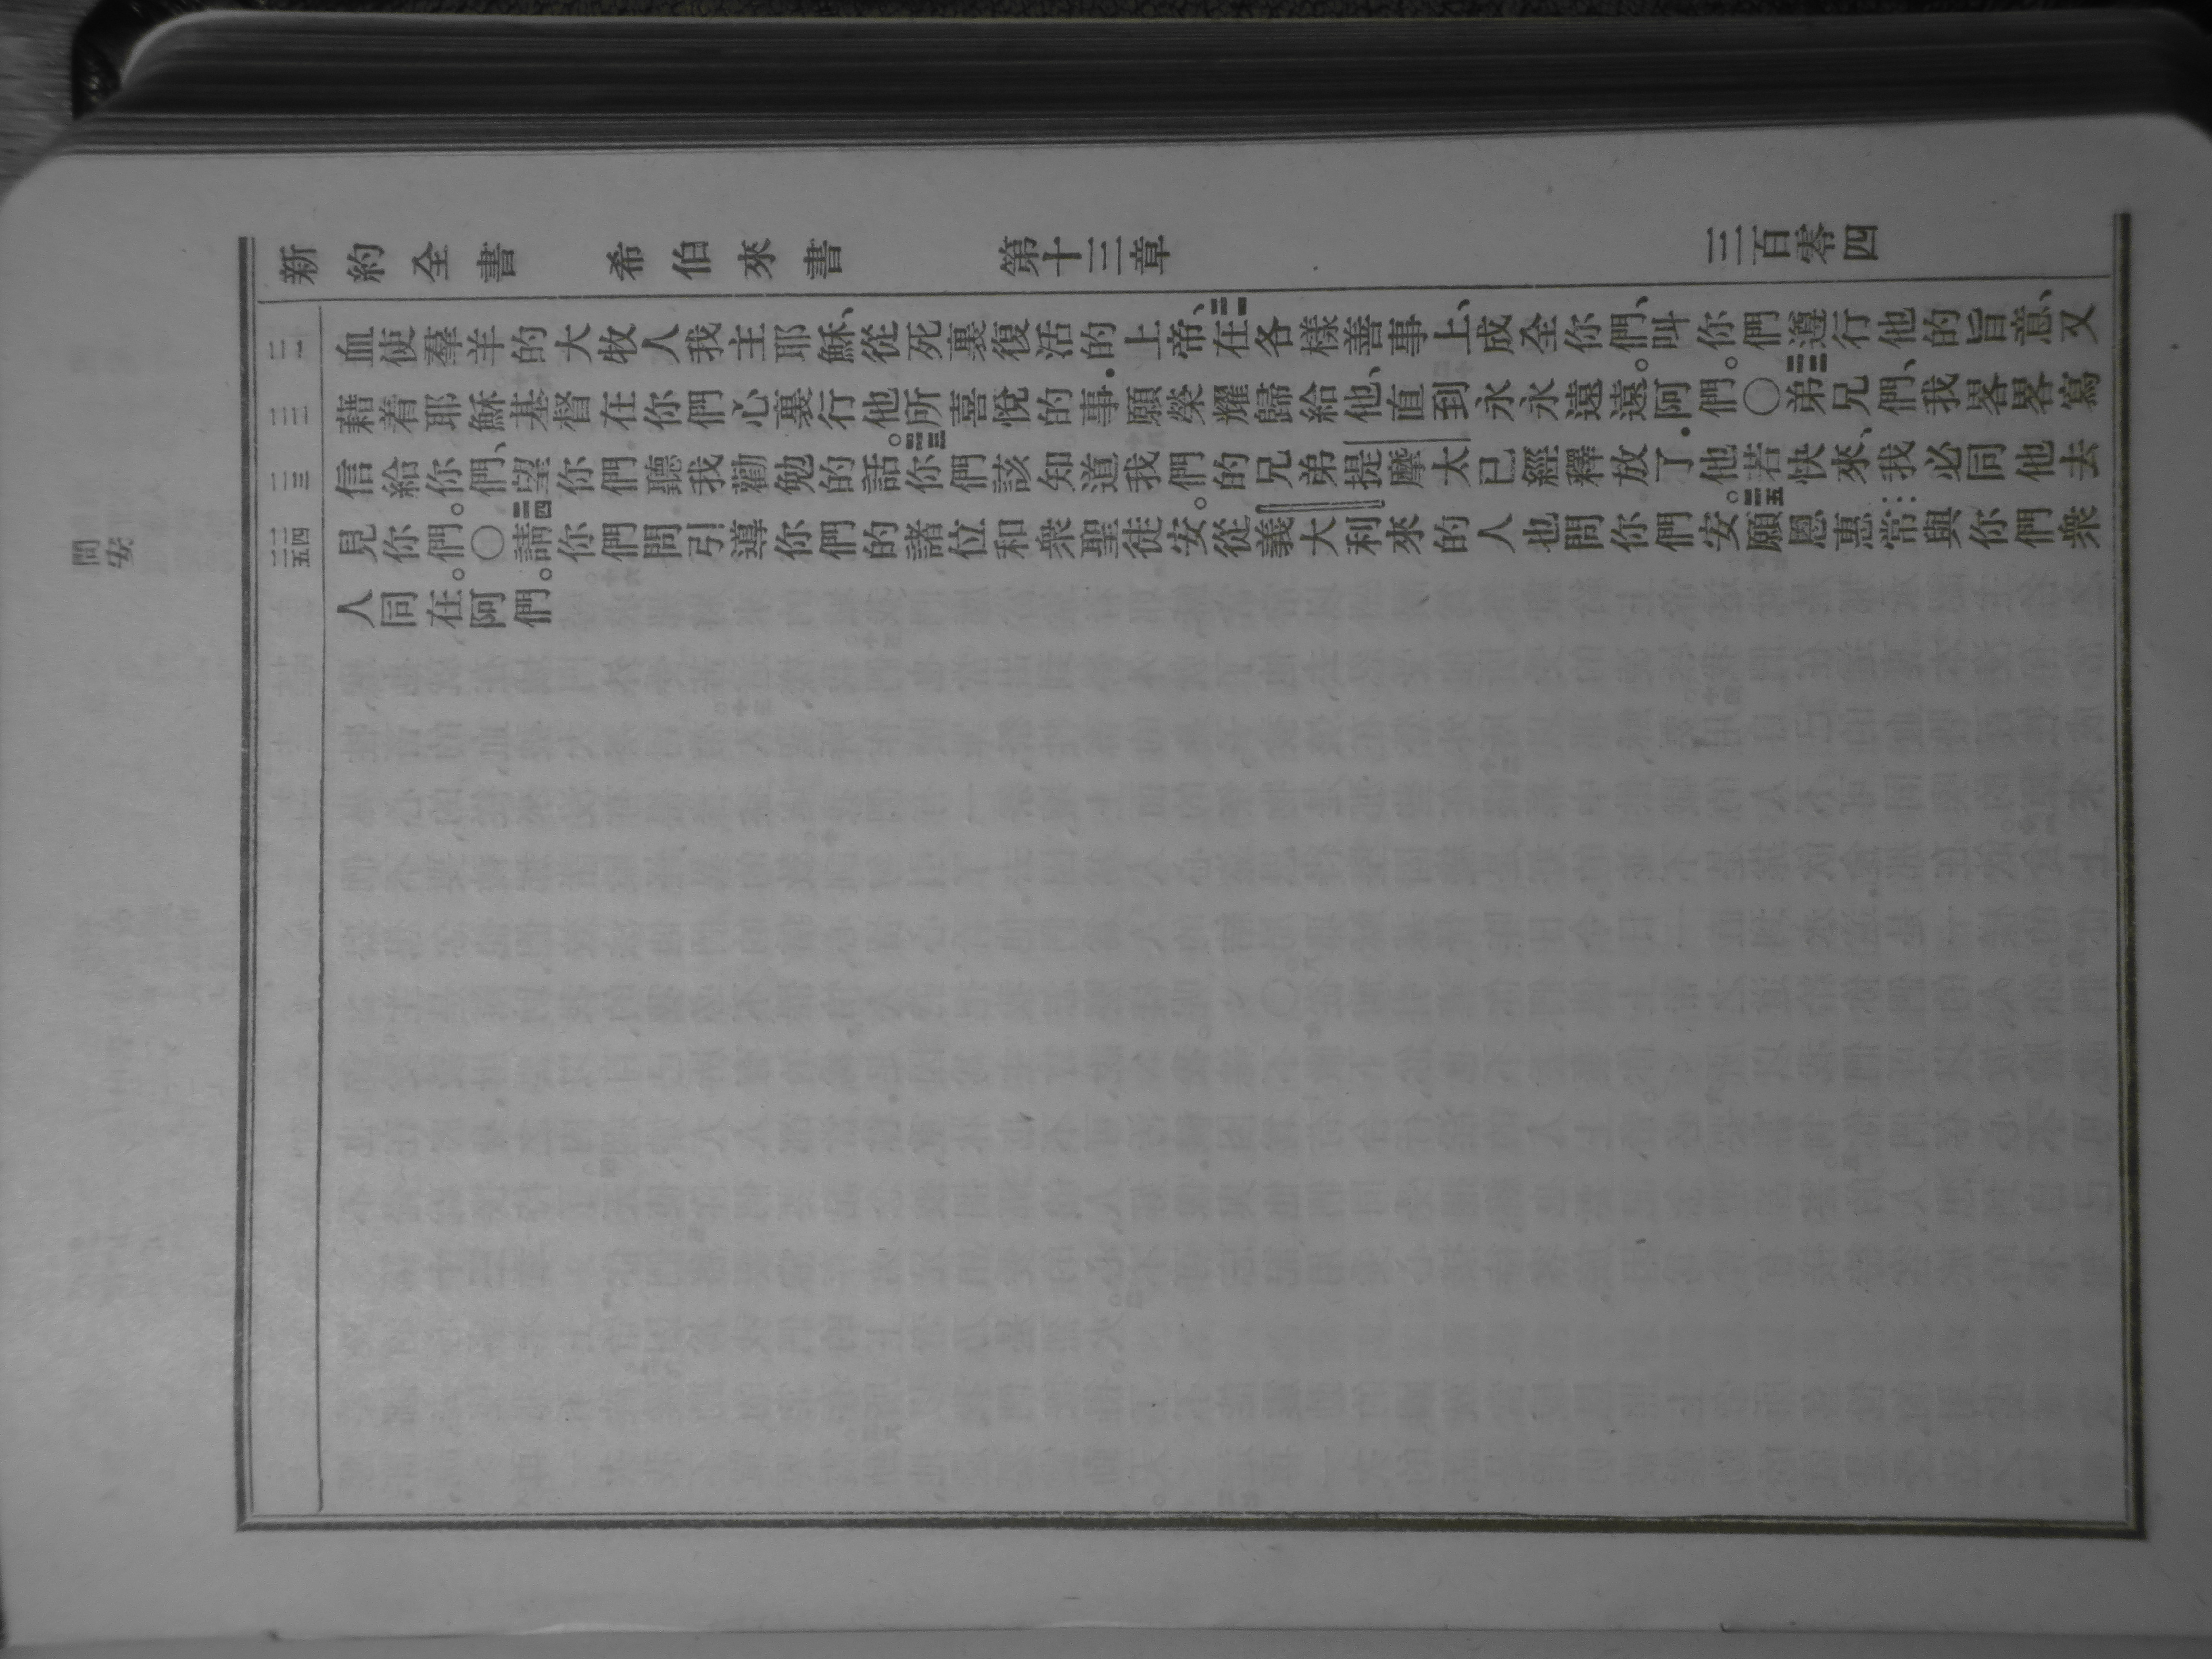 新約全書 希伯來書 第十三章 三百零四
問安
二一
二二
二三
二四
二五
血使羣羊的大牧人我主耶穌、從死裏復活的上帝、二一在各樣善事上、成全你們、叫你們遵行他的旨意、又
藉着耶穌基督在你們心裏行他所喜悅的事．願榮耀歸給他、直到永永遠遠。阿們。〇二二弟兄們、我畧畧寫
信給你們、望你們聽我勸勉的話。二三你們該知道我們的兄弟提摩太已經釋放了．他若快來、我必同他去
見你們。〇二四請你們問引導你們的諸位和衆聖徒安。從義大利來的人也問你們安。二五願恩惠常與你們衆
人同在。阿們。